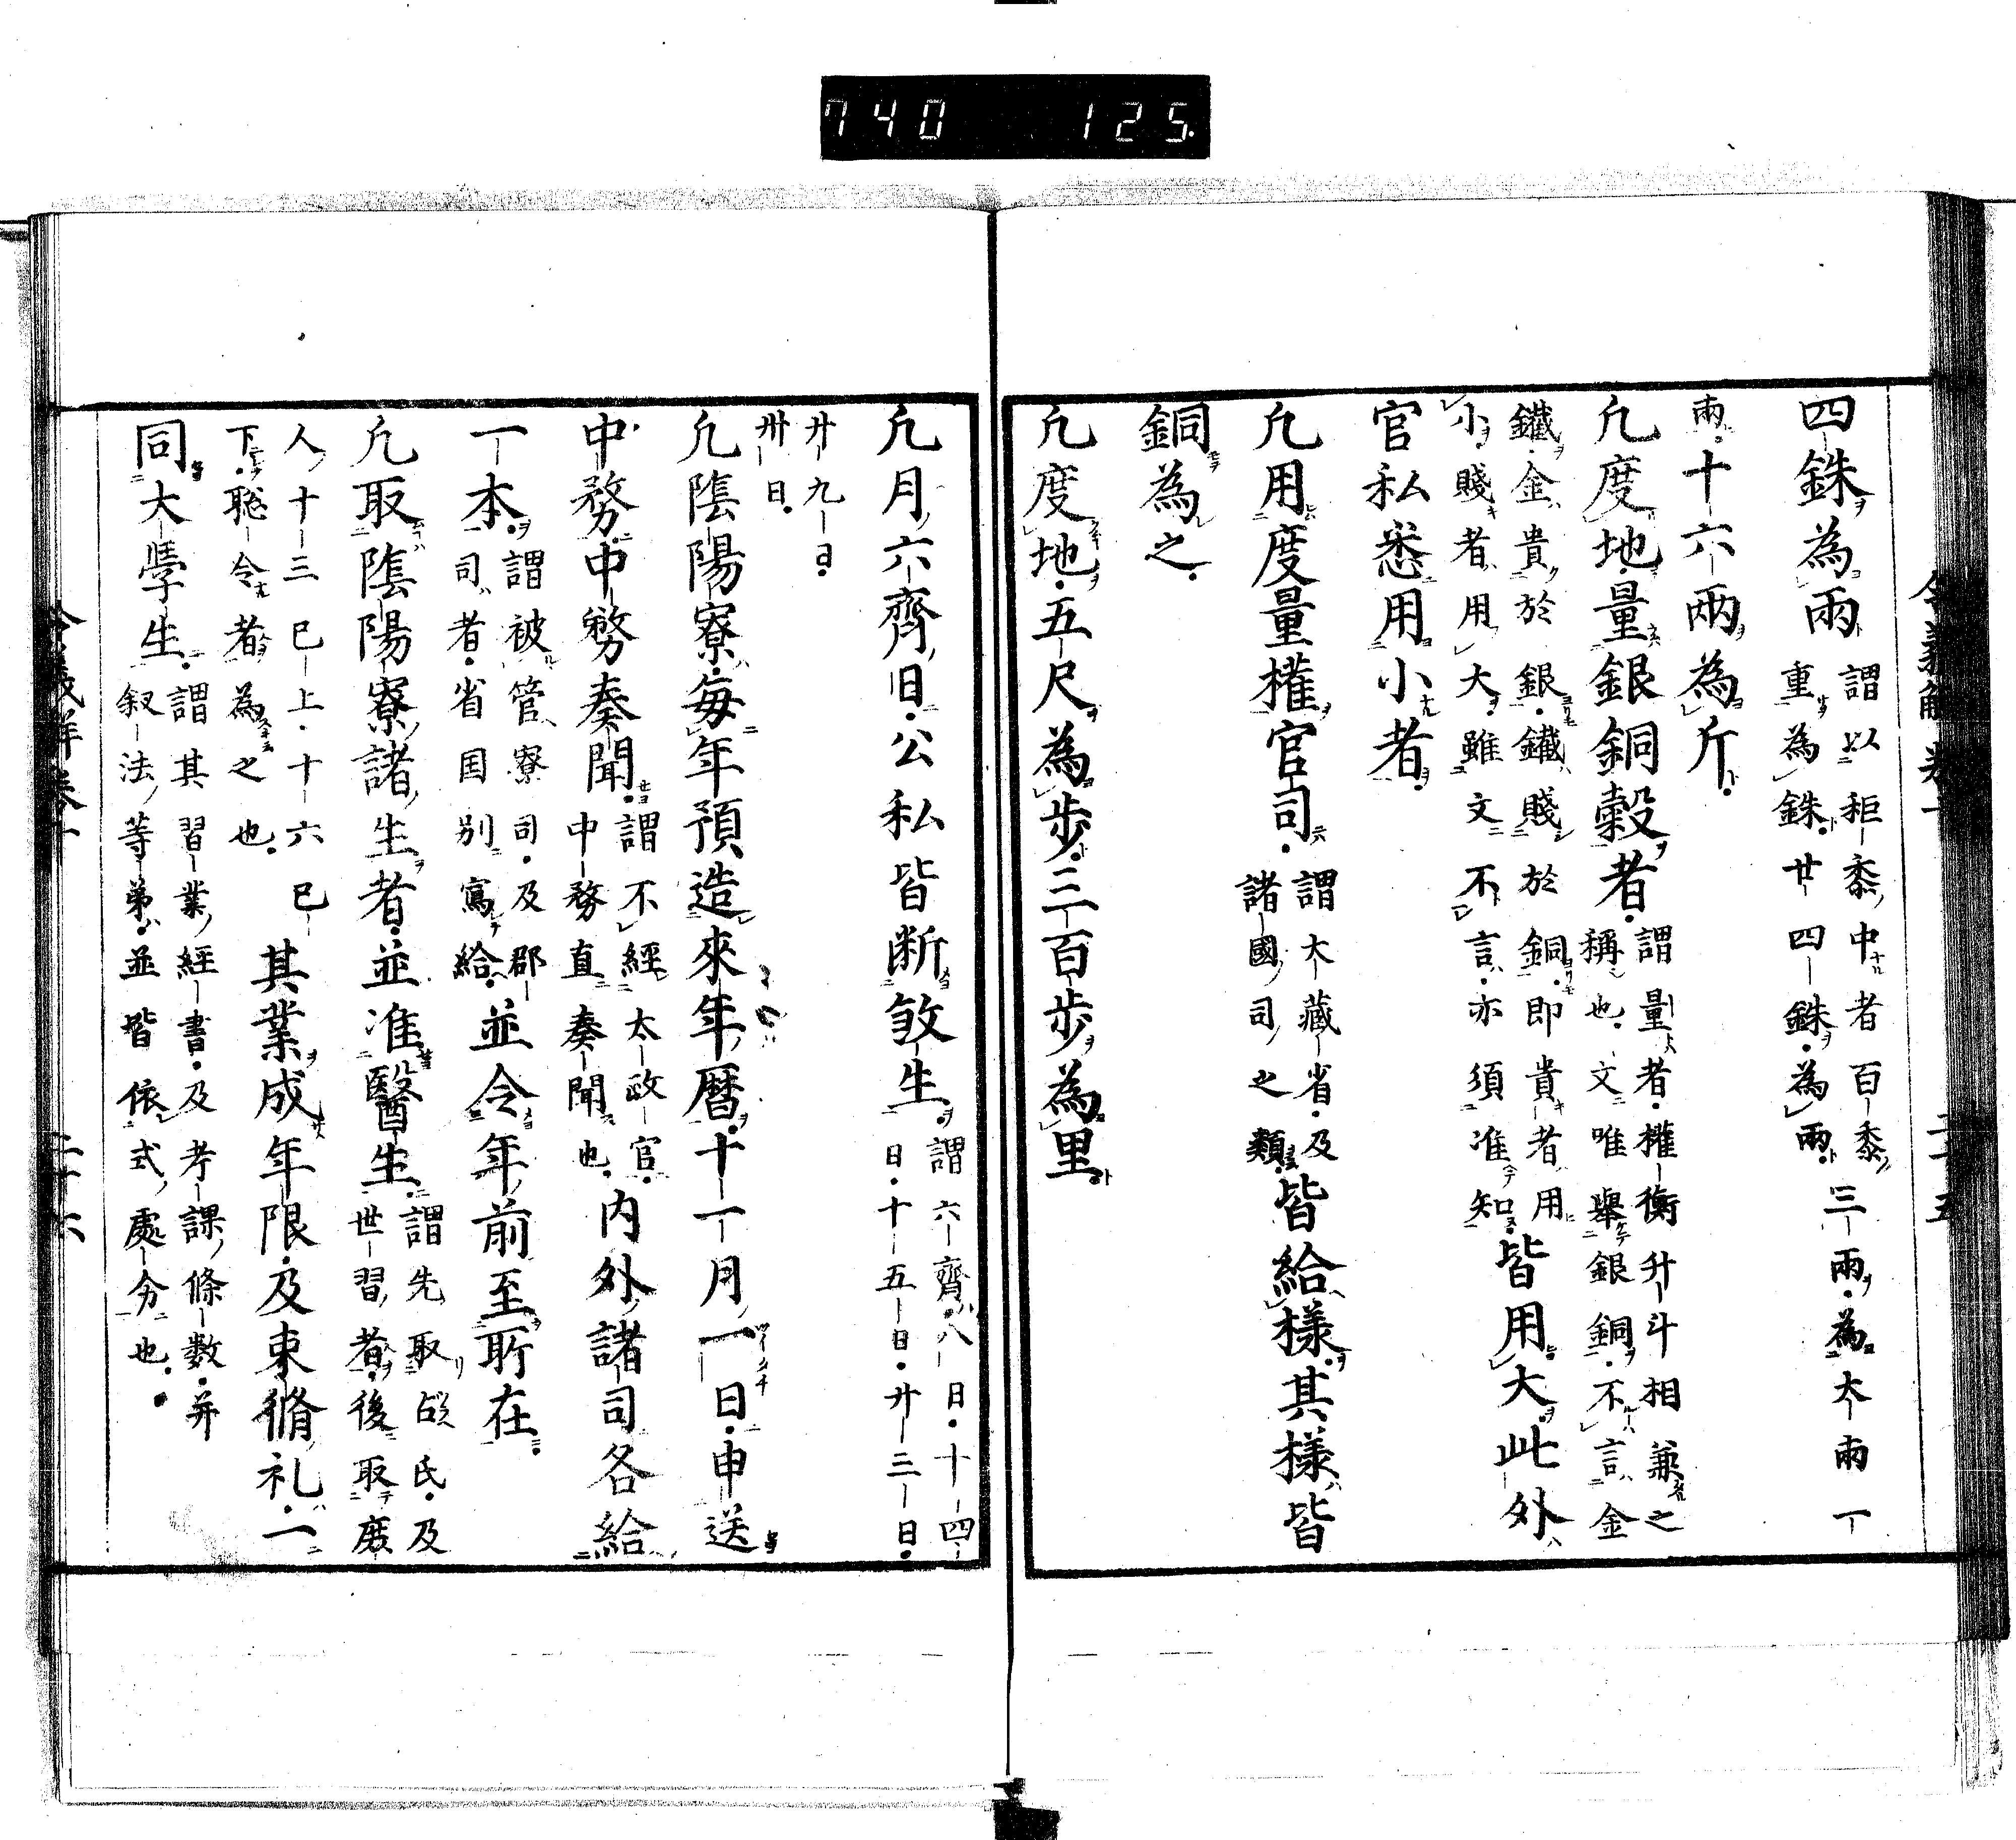 740 125.
四銖為兩謂以秬黍中者百黍重為銖廿四銖為兩三兩為大兩一
兩十六兩為斤
凢度地量銀銅糓者謂量者權衡升斗相兼之稱也文唯舉銀銅不言金
鐵金貴於銀鐵賤於銅即貴者用小賤者用大雖文不言亦須准知皆用大此外
官私悉用小者
凢用度量權官司謂大藏省及諸國司之類皆給樣其樣皆
銅為之
凢度地五尺為歩三百歩為里
凢月六齊日公私皆断煞生謂六齊八日十四日十五日廿三日
廿九日卅日
凢隂陽寮毎年預造來年暦十一月一日申送
中務中務奏聞謂不經太政官中務直奏聞也内外諸司各給
一本謂被管寮司及郡司者省国別寫給並令年前至所在
凢取隂陽寮諸生者並准醫生謂先取占氏及世習者後取庶
人十三已上十六已下聡令者為之也其業成年限及束脩礼一
同大學生謂其習業經書及考課條數并叙法等弟並皆依式處分也